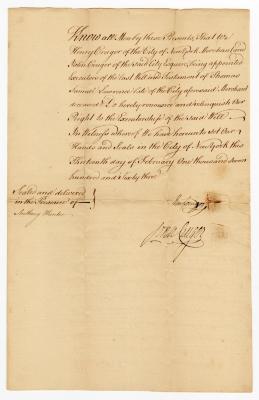 Know all Men by these Presents, That We
Henry Cruger of the City of New York Merchant and
John Cruger of the said City Esquire, being appointed
Executors of the last Will and Testament of Thomas
Samuel late of the City aforesaid Merchant
deceased Do hereby renounce and relinquish Our
Right to the Executorship of the said Will.
In Witness whereof We have hereunto set Our
Hands and Seals in the City of New York this
day of February One thousand seven
hundred and Sixty three
Sealed and delivered
in the Presence of
Anthony
John Cruger